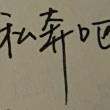 私奔吧